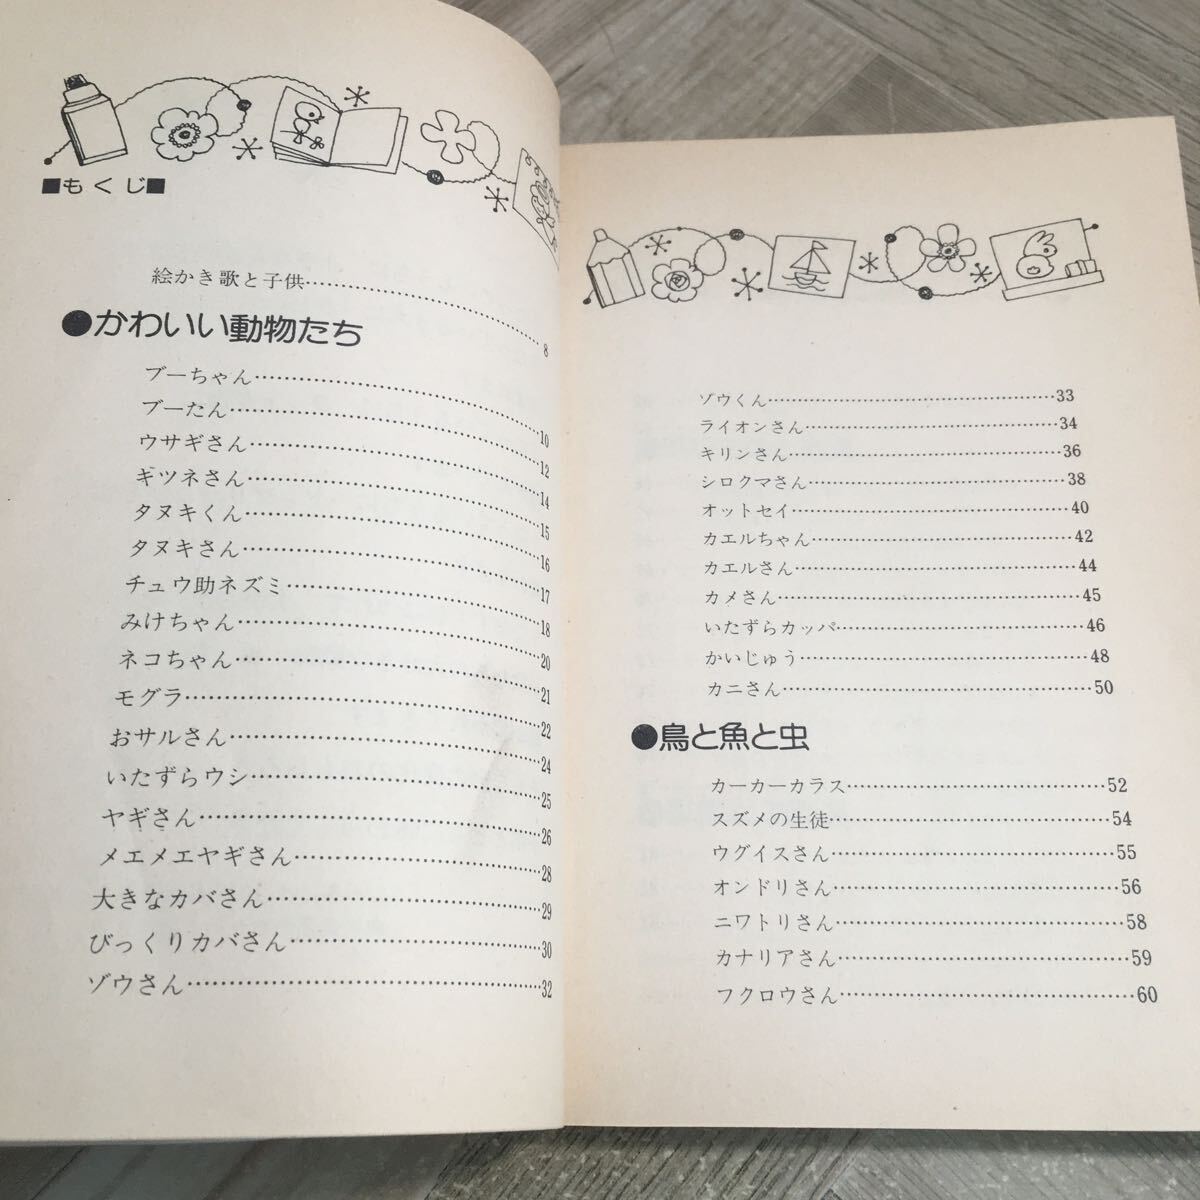 ■もくじ■
絵かき歌と子供……8
●かわいい動物たち
ブーちゃん……10
ブーたん……12
ウサギさん……14
キツネさん……15
タヌキくん……16
タヌキさん……17
チュウ助ネズミ……18
みけちゃん……20
ネコちゃん……21
モグラ……22
おサルさん……24
いたずらウシ……25
ヤギさん……26
メエメエヤギさん……28
大きなカバさん……29
びっくりカバさん……30
ゾウさん……32
ゾウくん……33
ライオンさん……34
キリンさん……36
シロクマさん……38
オットセイ……40
カエルちゃん……42
カエルさん……44
カメさん……45
いたずらカッパ……46
かいじゅう……48
カニさん……50
●鳥と魚と虫
カーカーカラス……52
スズメの生徒……54
ウグイスさん……55
オンドリさん……56
ニワトリさん……58
カナリアさん……59
フクロウさん……60